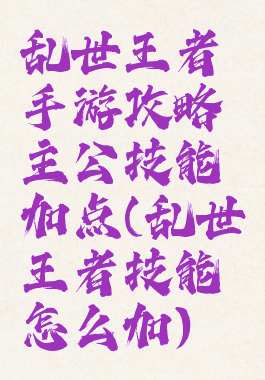 乱世王者
手游攻略
主公技能
加点(乱世
王者技能
怎么加)